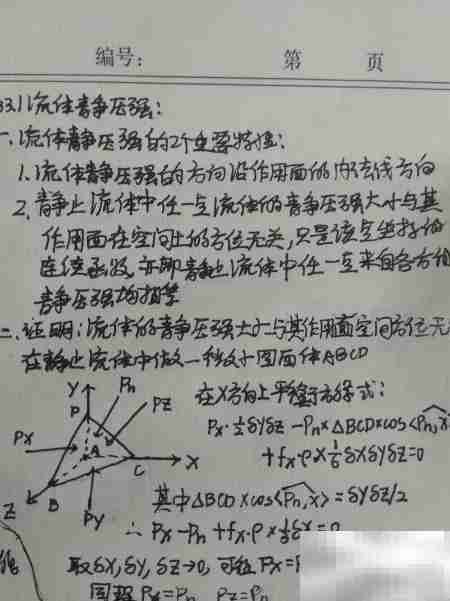 编号： 第 页
3.1 流体静压强：
一.流体静压强的2个重要特性：
1.流体静压强的方向沿作用面的内法线方向
2.静止流体中任一点流体的静压强大小与其
作用面在空间上的方位无关,只是该点坐标的
连续函数,亦即静止流体中任一点来自各方向
静压强均相等
二.证明：流体的静压强大小与其作用面空间方位无
在静止流体中做一微小四面体ABCD
Y Pn
D PZ
在X方向上平衡方程式：
Px·½δyδz-Pn×△BCD×cos<Pn,x>
+fx·ρ×⅙δxδyδz=0
Px A C X
Z B PY
其中△BCD×cos<Pn,x>=δyδz/2
∴ Px-Pn+fx·ρ×⅓δx=0
取δx,δy,δz→0,可得Px=P
同理 Py=Pn Pz=Pn